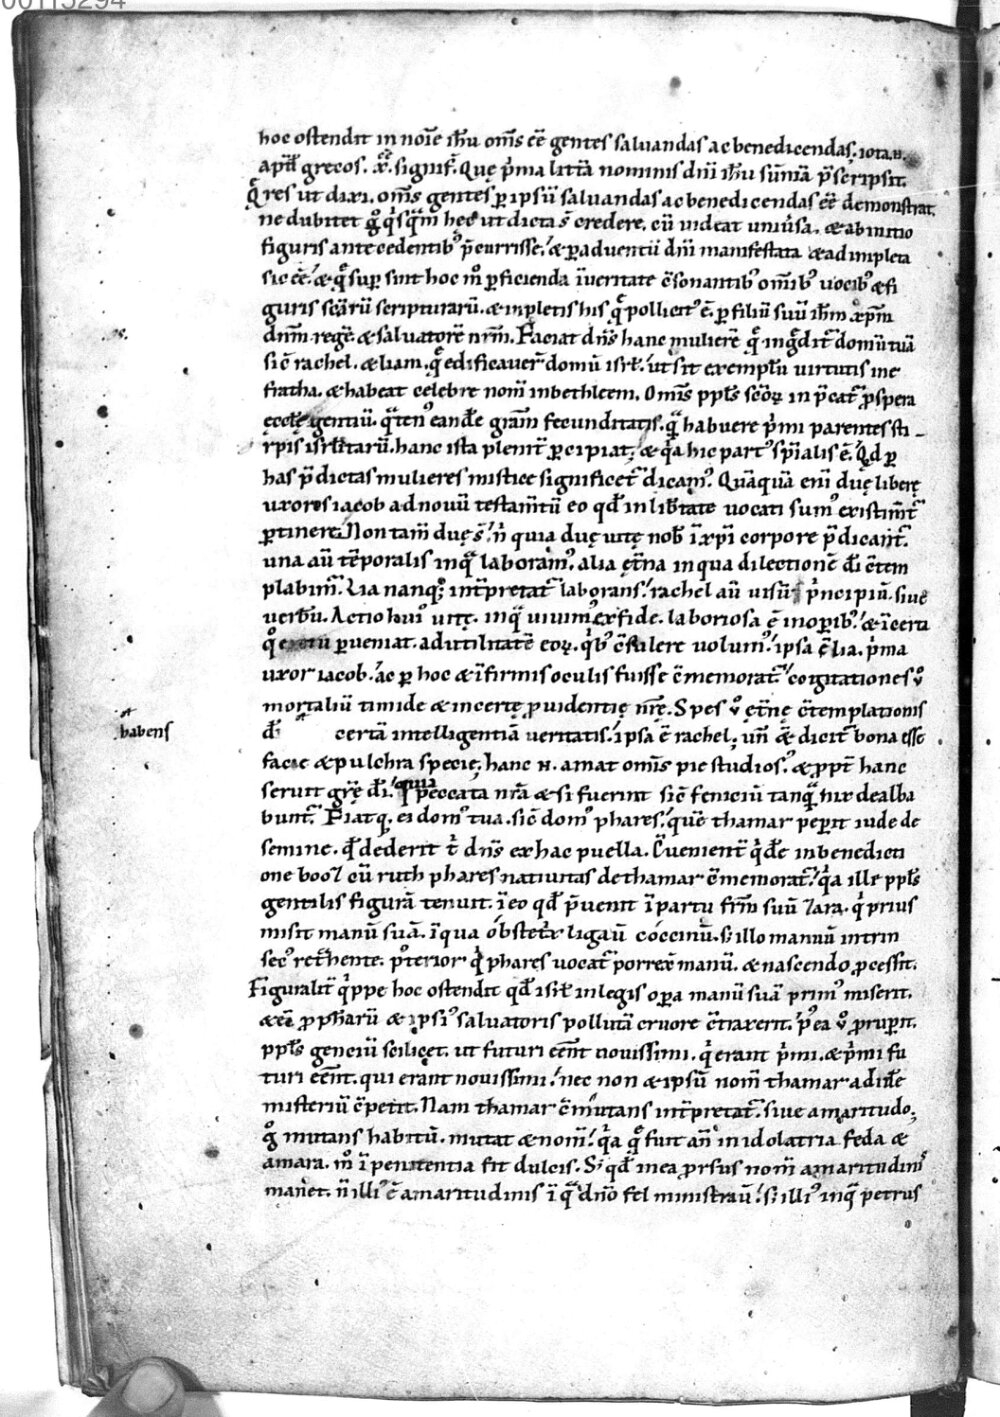 00115294
hoc ostendit in noīe ih̄u om̄s ēē gentes saluandas ac benedicendas. iota.n.
apud̄ grecos. x̄. signif̄. Quę p̍ma litt̄a nominis dn̄i ih̄u sūmā p̄scripsit.
Q̄res ut dixi. om̄s gentes ꝑ ipsū saluandas ac benedicendas ēē demonstrat.
ne dubitet g̊ q̍sq̄m hęc ut dicta s̄ credere, cū uideat uniūsa. & ab initio
figuris antecedentib᷒ p̄cucurrisse. & ꝑ aduentū dn̄i manifestata & adimpleta
sic ēē. & q̄ suꝑ sint hoc m̊ ꝑficienda ī ueritate c̄sonantib᷒ om̄ib᷒ uocib᷒ & fi
guris sc̄arū scripturarū. & inpletis his q̄ pollicit᷒ ē. ꝑ filiū suū ih̄m xp̄m
dn̄m regē. & saluatorē nr̄m. Faciat dn̄s hanc mulierē q̄ ingdit᷑ domū tuā
sic̄ rachel. & liam. q̄ edificauer̄ domū isrł. ut sit exemplū virtutis in e
fratha. & habeat celebre nom̄ in bethleem. Om̄s ppłs sc̄oꝝ in p̄cat᷑ ꝓspera
ęccłę gentiū. q̄ten᷒ eandē gr̄am fecunditatis. q̄ habuere p̍mi parentes sti
rpis isrłitarū. hanc ista plenit᷑ ꝑcipiat; & q̍a hic part᷒ spīalis ē. Qd ꝑ
has p̄dictas mulieres mistice significet᷑ dicam᷒. Quāquā eni duę liberę
uxores iacob ad nouū testam̄tū eo qđ in lib̄tate uocati sum᷒ existim̄t᷑
ꝑtinere. Non tam̄ duę s̄. n̄ quia duę uitę nob̄ ī xp̄i corpore p̄dicant᷑.
una aū tēporalis in q̄ laboram᷒. alia ęt̄na in qua dilectionē dī c̄tem
plabim᷑. Lia nanq; int̄pretat᷑ laborans. rachel aū uisū p̍ncipiū. siue
uerbū. Actio hui᷒ uitę. in q̄ uiuim᷒ ex fide. laboriosa ē in oꝑib᷒. & īcerta
q̊ exitū ꝑueniat. ad utilitatē eoꝝ. q̍b᷒ c̄sulere uolum᷒. ipsa ē lia. p̍ma
uxor iacob. ac ꝑ hoc & īfirmis oculis fuisse c̄memorat᷑. cogitationes ū
mortaliū timide & incertę ꝓuidentię nr̄ę. Spes ū ęt̄nę c̄templationis
dī certā intelligentiā ueritatis. ipsa ē rachel; un̄ & dicit᷑ bona esse
facie & pulchra specię; hanc n. amat omis pie studios᷒. & ꝓpt̄ hanc
seruit gr̄ę dī. quia peccata nr̄a & si fuerint sic̄ feniciū tanq̄ nix dealba
bunt᷑. Fiatq. ei dom᷒ tua. sic̄ dom᷒ phares. quē thamar peꝑit iude de
semine. q̄ dederit t̍ dn̄s ex hac puella. C̄uenient᷑ q̍dē in benedicti
one booz cū ruth phares natiuitas de thamar c̄memorat᷑. q̍a ille ppłs
gentilis figurā tenuit. ī eo qđ p̄uenit ī partu fr̄m suū zara. q̍ prius
misit manū suā. ī qua obstet̍x ligaū coccinū. s; illo manuū intrin
sec᷒ ret̄hente. p᷒terior q̍ phares uocat᷑ porrex̄ manū. & nascendo ꝓcessit.
Figuralit̄ q̍ppe hoc ostendit qđ isrł in legis oꝑa manū suā prim᷒ miserit.
& eā ꝓph̄arū & ipsi᷒ saluatoris pollutā cruore c̄traxerit. p᷒ea ū ꝓruꝑit.
ppłs genciū scilicet. ut futuri ēēnt nouissimi. q̍ erant p̍mi. & p̍mi fu
turi ēēnt. qui erant nouissimi. nec non & ipsū nom̄ thamar ad indē
misteriū c̄petit. Nam thamar c̄mutans int̄pretat᷑. siue amaritudo;
g̊ mutans habitū. mutat & nom̄. q̍a q̄ fuit an̄ in idolatria feda &
amara. m̊ ī penitentia fit dulcis. S; qđ in ea ꝓrsus nom̄ amaritudinis
manet. n̄ illi᷒ ē amaritudinis ī q̄ dn̄o fel ministraū. s; illi᷒ in q̄ petrus
habens